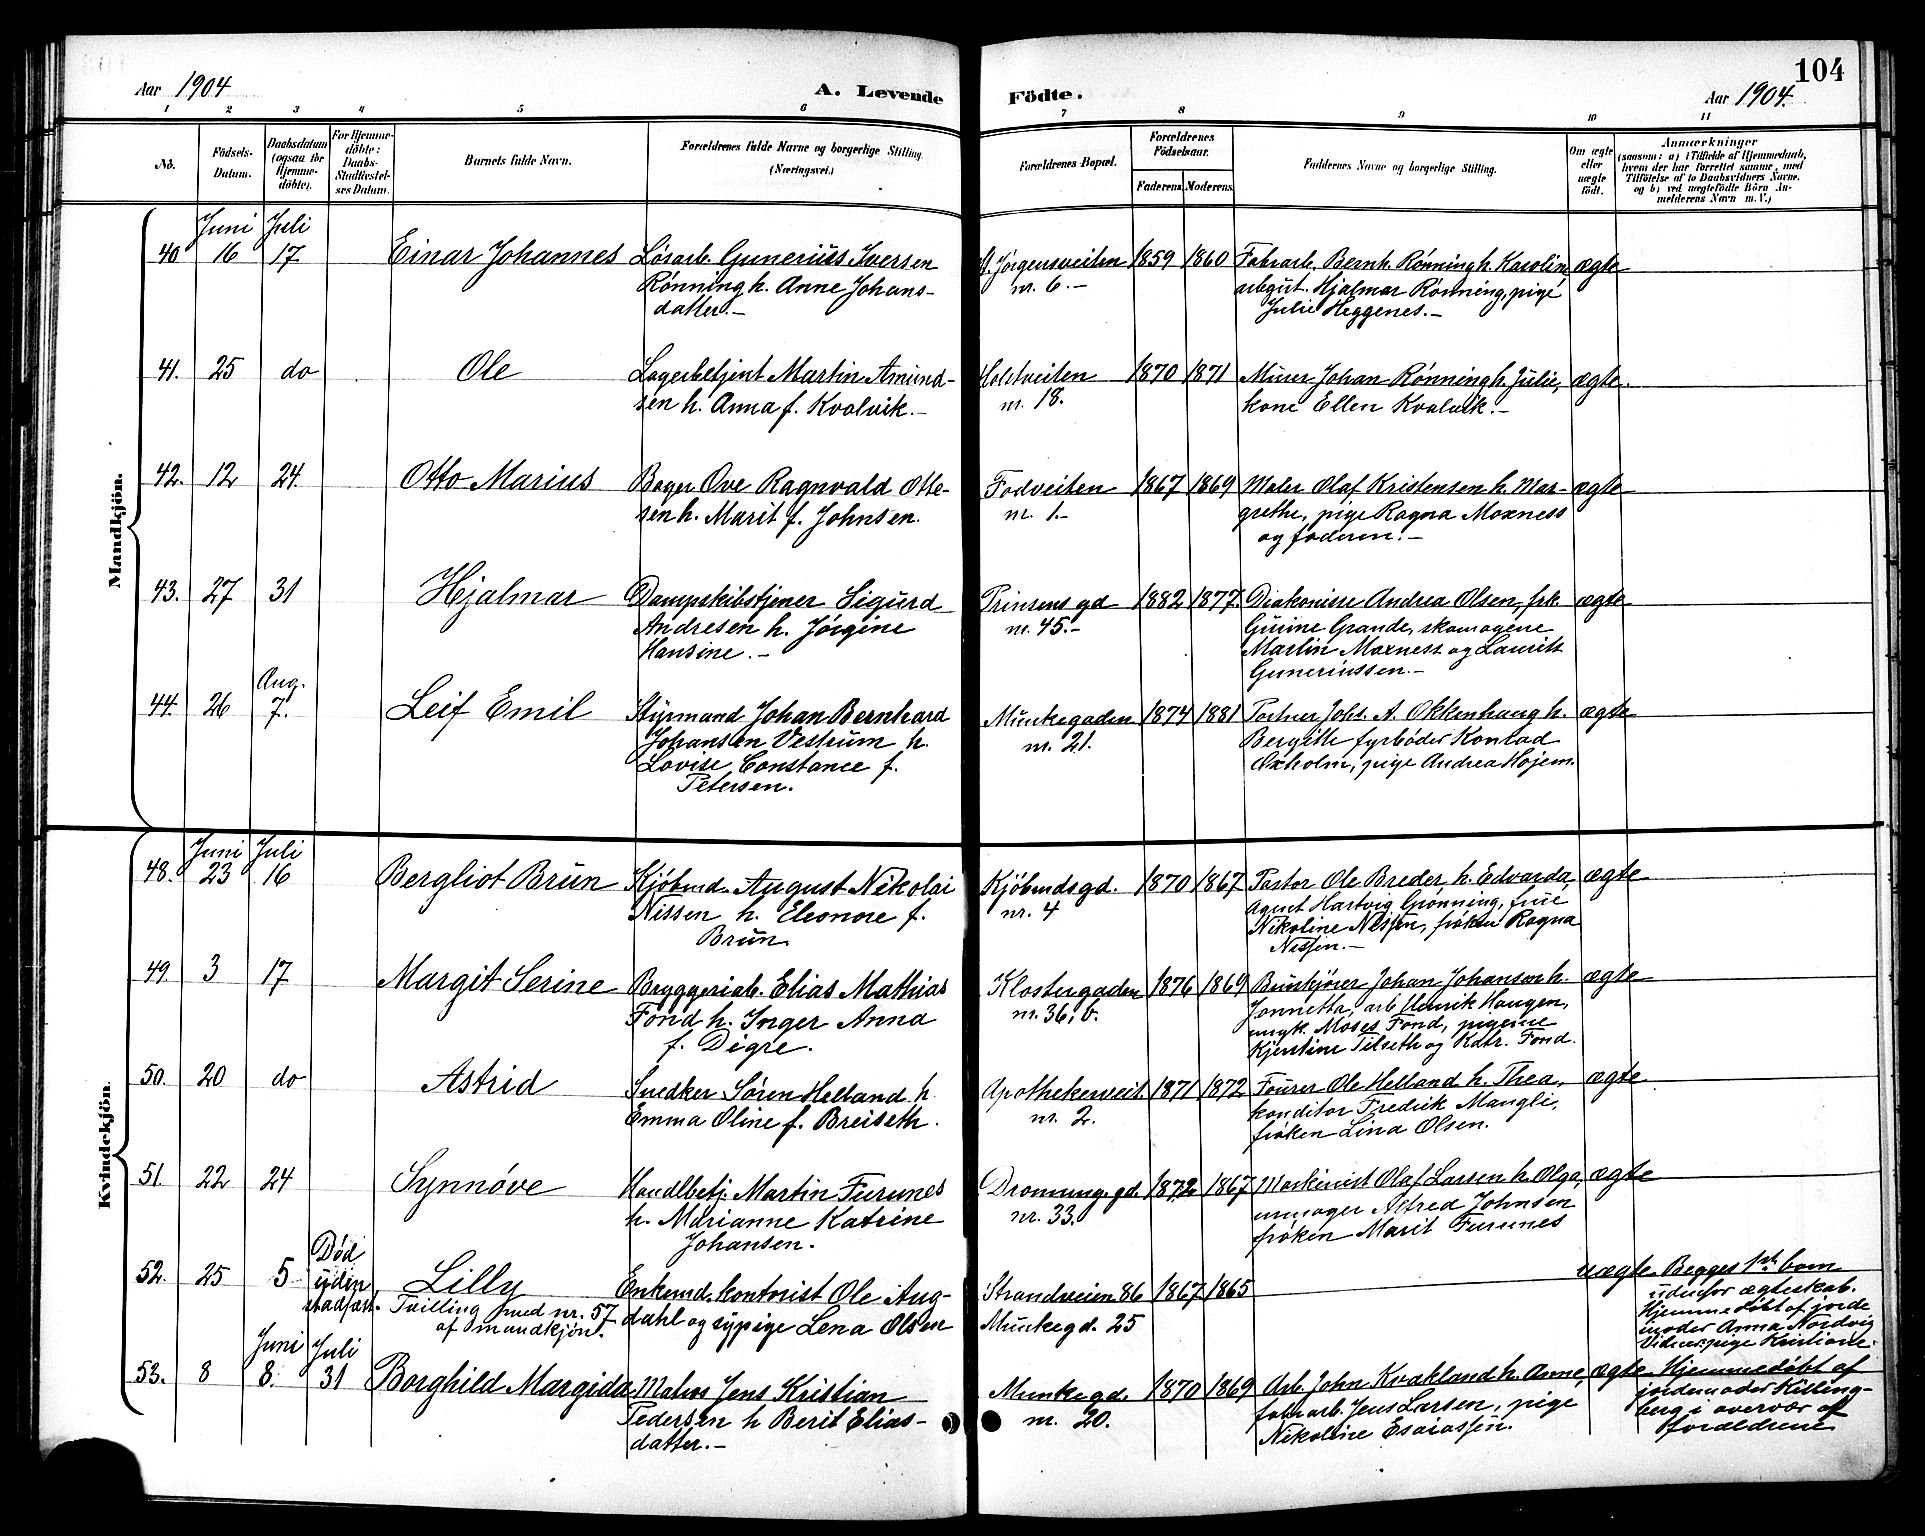 104
Aar 1904
A. Levende
Födte.
Aar 1904.
1 2 3 4 5 6 7 8 9 10 11
No.
Födsels-
Datum.
Daabsdatum
(ogsaa for
Hjemme-
döbte).
For Hjemme-
döbte:
Daabs-
Stadfæstel-
ses Datum.
Barnets fulde Navn.
Forældrenes fulde Navne og borgerlige Stilling.
(Næringsvei.)
Forældrenes Bopæl.
Forældrenes
Födselsaar.
Faderens. Moderens.
Faddernes Navne og borgerlige Stilling.
Om ægte
eller
uægte
födt.
Anmærkninger
(saasom: a) i Tilfælde af Hjemmedaab,
hvem der har forrettet samme, med
Tilföielse af to Daabsvidners Navne.
og b) ved uægtefödte Börn An-
melderens Navn m. V.)
Mandkjön.
Juni Juli
40 16 17 Einar Johannes Lösarb. Gunerius Iversen
Rønning h. Anne Johans-
datter.-
St. Jørgensveiten
nr. 6.-
1859 1860 Fabrarb. Bernh. Rønning h. Karolin
arbgut. Hjalmar Rønning, pige
Julie Heggenes.-
ægte
41. 25 do Ole Lagerbetjent Martin Amund-
sen h. Anna f. Kvalvik.-
Holstveiten
nr. 18.
1870 1871 Murer Johan Rønning h. Julie,
kone Ellen Kvalvik.-
ægte.
42. 12 24 Otto Marius Bager Ove Ragnvald Otte-
sen h. Marit f. Johnsen.
Fodveiten
nr. 1.-
1867 1869 Maler Olaf Kristensen h. Mar-
grethe, pige Ragna Moxness
og faderen.-
ægte
43. 27 31 Hjalmar Dampskibstjener Sigurd
Andresen h. Jørgine
Hansine.-
Prinsens gd
nr. 45.-
1882 1877. Diakonisse Andrea Olsen, frk.
Gurine Grande, skomagene
Martin Moxness og Lauritz
Guneriussen.-
ægte
Aug.
44. 26 7. Leif Emil Styrmand Johan Bernhard
Johansen Vestrum h.
Lovise Constance f.
Petersen.
Munkegaden
nr. 21.
1874 1881 Portner Johs. A. Okkenhaug h.
Bergitte fyrbøder Konrad
Oxholm, pige Andrea Højem.
ægte
Kvindekjön.
Juni Juli
48. 23 16 Bergliot Brun Kjøbmd. August Nikolai
Nissen h. Eleonore f.
Brun.
Kjøbmdsgd.
nr. 4
1870 1867 Pastor Ole Breder h. Edvarda,
Agent Hartvig Grønning, frue
Nikoline Nissen, frøken Ragna
Nissen.-
ægte
49 3 17 Margit Serine Bryggeriab. Elias Mathias
Fond h. Inger Anna
f. Digre.
Klostergaden
nr. 36, b.
1876 1869 Johan Johansen h.
Jonnetha, arb Henrik Haugen,
ungk. Moses Fond, pigerne
Kjerstine Tilseth og Katr. Fond.
ægte
50. 20 do Astrid Snedker Søren Helland h
Emma Oline f. Breiseth.
Apothekerveit.
nr. 2.
1871 1872 Fourer Ole Helland h. Thea,
konditor Fredrik Mangli,
frøken Lina Olsen.
ægte
51. 22 24 Synnøve Handlbetj. Martin Furunes
h. Marianne Katrine
Johansen.
Dronning. gd.
nr. 33.
1872 1867 Maskinist Olaf Larsen h. Olga,
urmager Alfred Johnsen
frøken Marit Furunes
ægte
52. 25 5 Død
uden
stadfæst. Lilly
Tvilling med nr. 57
af mandkjøn.
Enkemd. kontorist Ole Aug-
dahl og sypige Lena Olsen
Strandveien 86
Munkegd. 25
1867 1865
uægte Begges 1st barn
udenfor ægteskab.
Hjemmedøbt af jorde
moder Anna Nordvig
Vidner: pige Kristiane.
Juni Juli
53. 8 8. 31 Borghild Margida Maler Jens Kristian
Pedersen h Berit Elias-
datter.-
Munkegd.
nr. 20.
1870 1869 Arb. John Kvakland h. Anne,
fabrarb. Jens Larsen, pige
Nikoline Esaiassen.
ægte Hjemmedøbt af
jordemoder Killing-
berg i overvær af
forældrene